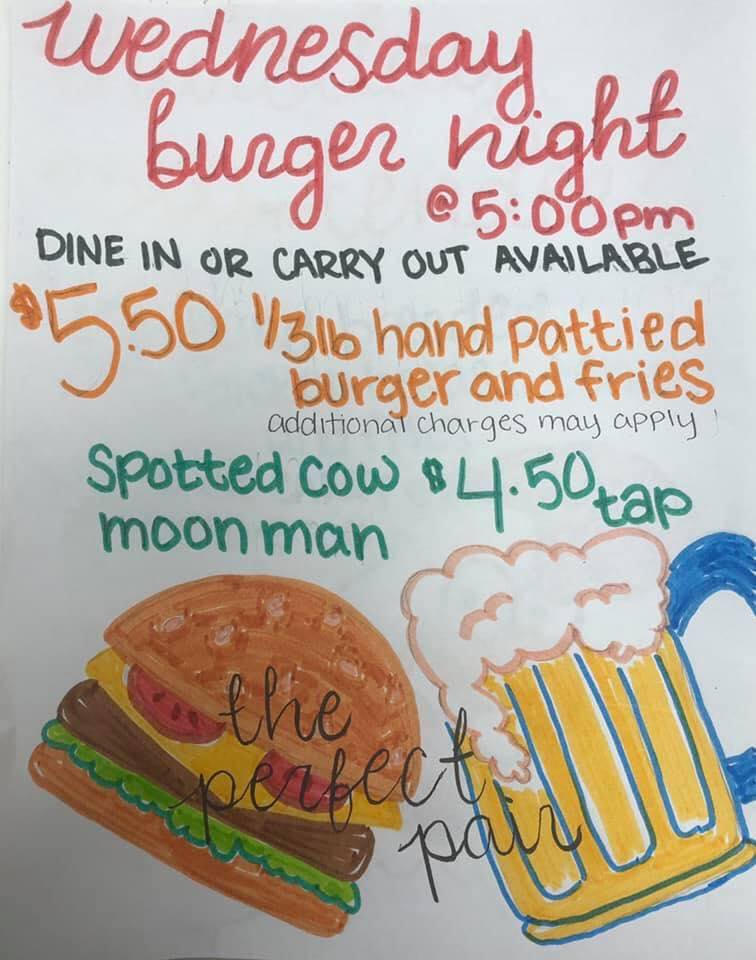 wednesday
burger night
@ 5:00pm
DINE IN OR CARRY OUT AVAILABLE
$5.50 1/3lb hand pattied
burger and fries
additional charges may apply
Spotted Cow $4.50 tap
moon man
the
perfect
pair